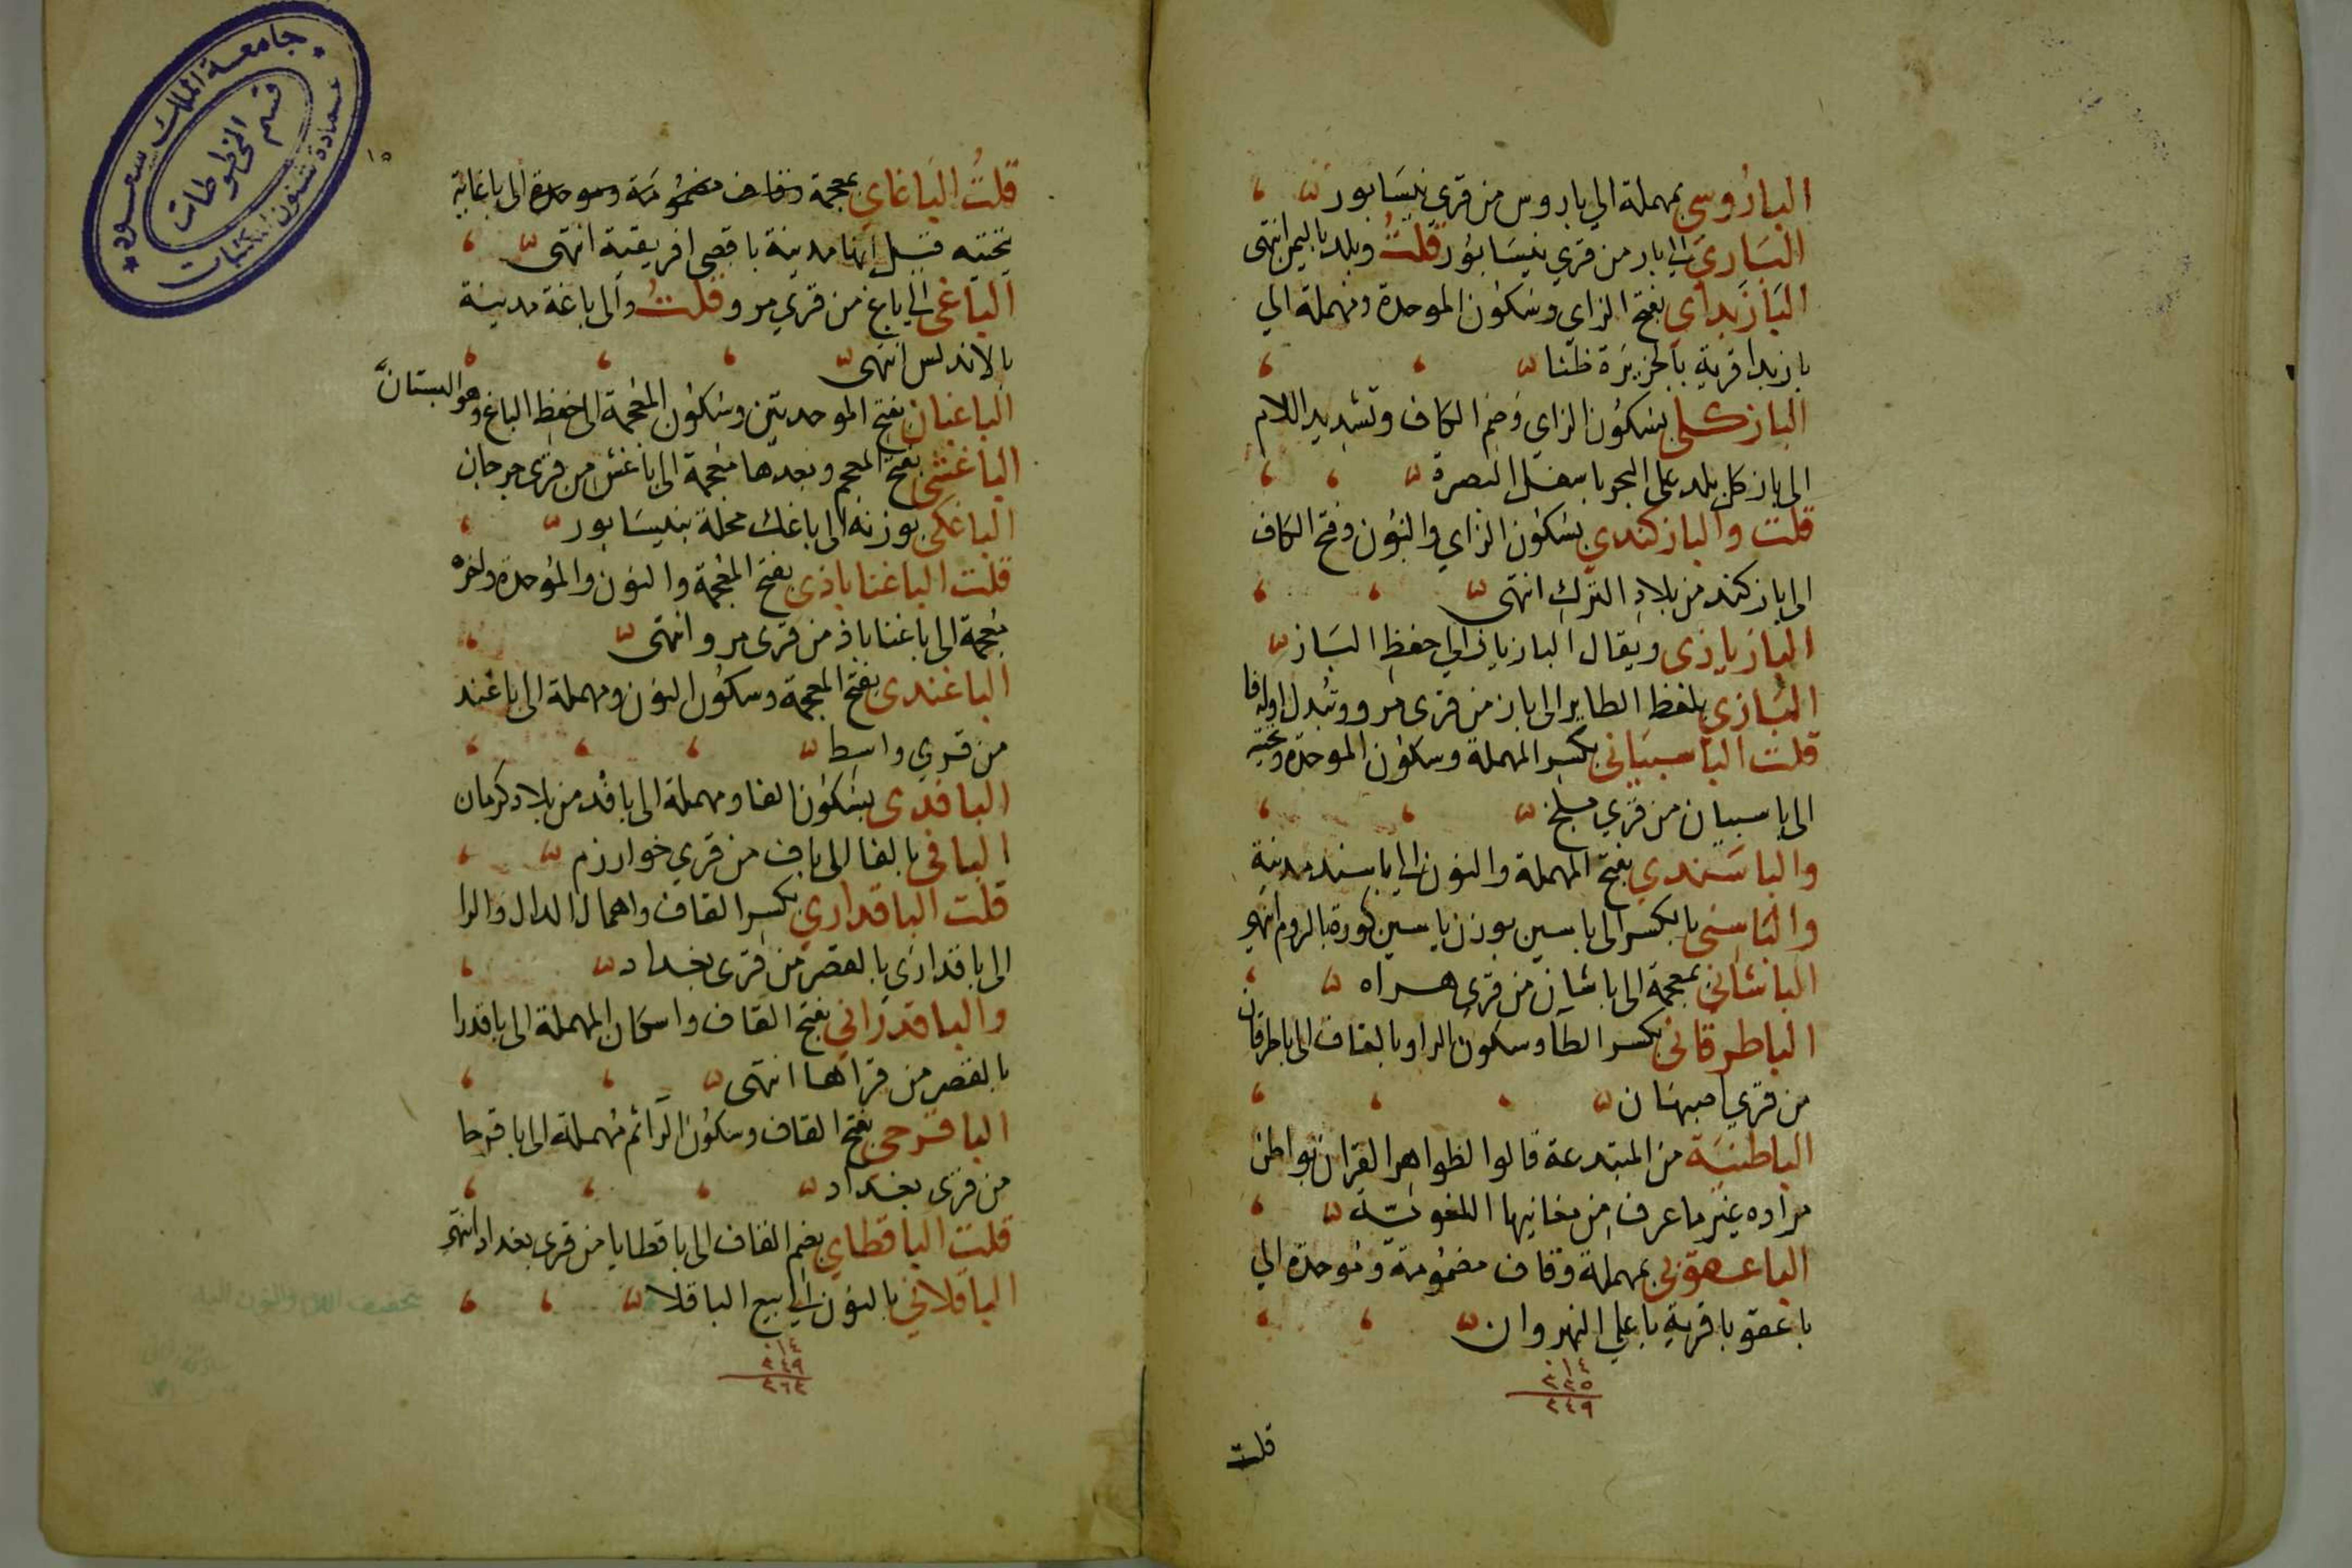 الباروسي بمهملة الي باروس من قري نيسابور
الباري الي بار من قري نيسابور قلت وبلد باليمن انتهى
البازبداي بفتح الزاي وسكون الموحدة ومهملة الي
بازبدا قرية بالجزيرة ظنا
البازكلي بسكون الزاي وضم الكاف وتشديد اللام
الى بازكل بلد على البحر باسفل البصرة
قلت والبازكندي بسكون الزاي والنون وفتح الكاف
الى بازكند من بلاد الترك انتهى
البازيازى ويقال البازيار الي حفظ الباز
البازي بلفظ الطاير الى باز من قرى مرو وتبدل اوله فا
قلت الباسبياني بكسر المهملة وسكون الموحدة وتحتية
الى باسبيان من قري بلخ
والباسندي بفتح المهملة والنون الي باسند مدينة
والباسني بالكسر الى باسين بوزن ياسين كورة بالروم انتهى
الباشاني بمعجمة الى باشان من قرى هراه
الباطرقاني بكسر الطا وسكون الرا وبالقاف الى باطرقان
من قري اصبهان
الباطنية من المبتدعة قالوا لظواهر القران بواطن
مراده غير ما عرف من معانيها اللغوية
الباعقوبي بمهملة وقاف مضمومة وموحدة الي
باعقوبا قرية باعلي النهروان
١٤
٢٣٥
٢٤٩
قلت
١٥
قلت الباغاي بمعجمة وقاف مضمومة وموحدة الى باغاية
تحتيه قيل انها مدينة باقصى افريقية انتهى
الباغي الي باغ من قري مرو قلت والى باغة مدينة
بالاندلس انتهى
الباغبان بفتح الموحدتين وسكون المعجمة الى حفظ الباغ وهو البستان
الباغشي بفتح المعجم وبعدها معجمة الى باغش من قرى جرجان
الباغكي بوزنه الى باغك محلة بنيسابور
قلت الباغناباذى بفتح المعجمة والنون والموحدة واخره
معجمة الى باغناباذ من قرى مرو انتهى
الباغندى بفتح المعجمة وسكون النون ومهملة الى باغند
من قري واسط
البافدى بسكون الفا ومهملة الى بافد من بلاد كرمان
البافي بالفا الى باف من قري خوارزم
قلت الباقداري بكسر القاف واهمال الدال والرا
الى باقدارى بالقصر من قرى بغداد
والباقدراني بفتح القاف واسكان المهملة الى باقدرا
بالقصر من قراها انتهى
الباقرحي بفتح القاف وسكون الرا ثم مهملة الى باقرحا
من قرى بغداد
قلت الباقطاي بضم القاف الى باقطايا من قرى بغداد انتهى
الباقلاني بالنون الي بيع الباقلا
١٤
٢٤٩
٢٦٣
جامعة الملك سعود
قسم المخطوطات
عمادة شئون المكتبات